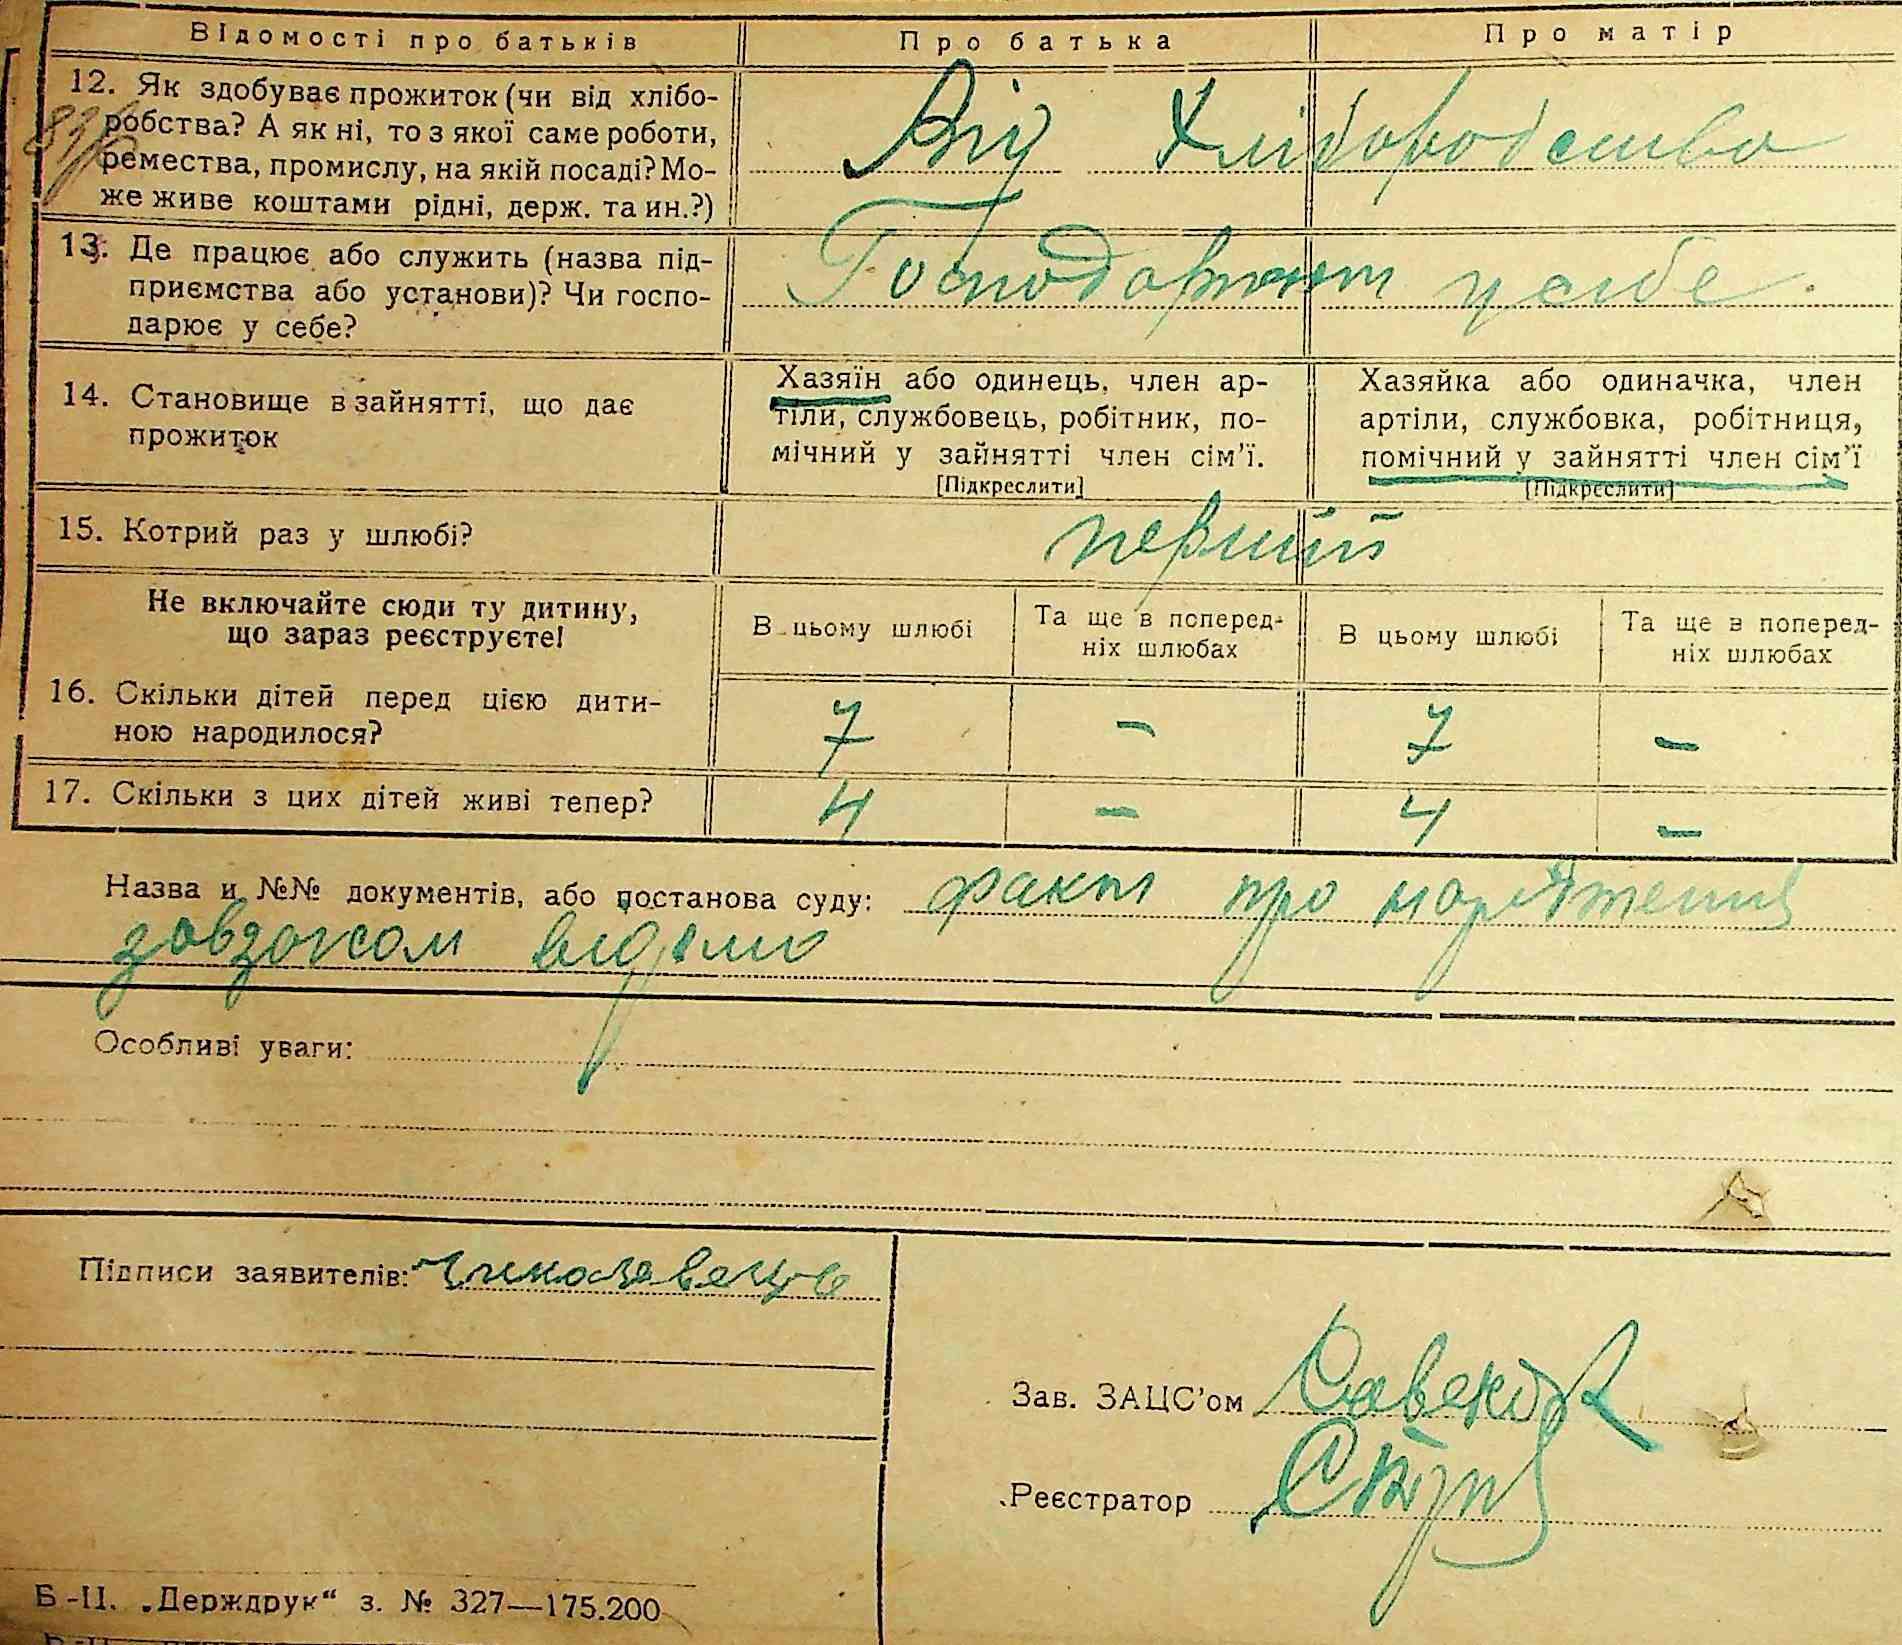 Відомості про батьків
Про батька
Про матір
12. Як здобуває прожиток (чи від хлібо-
робства? А як ні, то з якої саме роботи,
ремества, промислу, на якій посаді? Мо-
же живе коштами рідні, держ. та ин.?)
Від Хліборобства
13. Де працює або служить (назва під-
приємства або установи)? Чи госпо-
дарює у себе?
Господарюют у себе.
14. Становище в зайнятті, що дає
прожиток
Хазяїн або одинець, член ар-
тіли, службовець, робітник, по-
мічний у зайнятті член сім'ї.
[Підкреслити]
Хазяйка або одиначка, член
артіли, службовка, робітниця,
помічний у зайнятті член сім'ї
[Підкреслити]
15. Котрий раз у шлюбі?
первий
Не включайте сюди ту дитину,
що зараз реєструєте!
В цьому шлюбі
Та ще в поперед-
ніх шлюбах
В цьому шлюбі
Та ще в поперед-
ніх шлюбах
16. Скільки дітей перед цією дити-
ною народилося?
7 - 7 -
17. Скільки з цих дітей живі тепер?
4 - 4 -
Назва и №№ документів, або постанова суду: факт про
завзагсом відомо
Особливі уваги:
Підписи заявителів:
Зав. ЗАЦС'ом
Реєстратор
Б-II. „Держдрук“ з. № 327—175.200